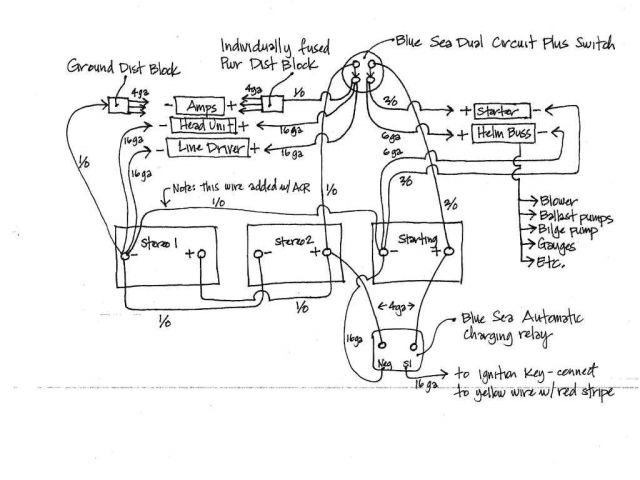 Individually fused
Pwr Dist Block
Blue Sea Dual Circuit Plus Switch
Ground Dist Block
4ga
4ga
1/0
- Amps +
- Head Unit +
- Line Driver +
16ga
16ga
16ga
16ga
3/0
+ Starter -
6ga
+ Helm Buss -
6ga
3/0
1/0
Note: this wire added w/ACR
1/0
1/0
3/0
Blower
Ballast pumps
Bilge pump
Gauges
Etc.
Stereo 1
- +
Stereo 2
- +
Starting
- +
1/0
1/0
4ga
16ga
Blue Sea Automatic
Charging relay
Neg SI
16 ga
to Ignition Key - connect
to yellow wire w/ red stripe